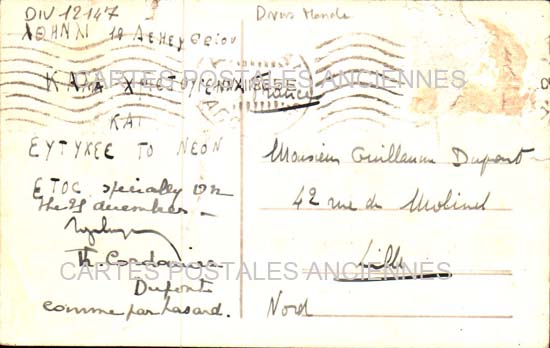 DIV 12147
Divers Monde
ΑΘΗΝΑΙ 18
CARTES POSTALES ANCIENNES
ΚΑΛΑ ΧΡΙΣΤΟΥΓΕΝΝΑ
France
ΚΑΙ
ΕΥΤΥΧΕΣ ΤΟ ΝΕΟΝ
ΕΤΟΣ specially on
the 25 december
Th. Cordonnier
Dupont
comme par hasard.
Monsieur Guillaume Dupont
42 rue de Molinel
Lille
CARTES POSTALES ANCIENNES
Nord